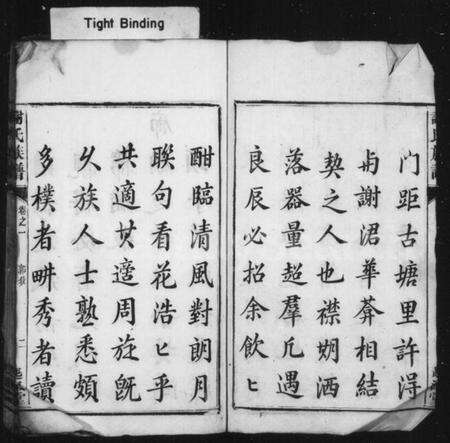 Tight Binding
門距古塘里許淂
與謝涒華莽相結
契之人也襟期洒
落器量超羣凡遇
良辰必招余飲匕
酣臨清風對朗月
聯句看花浩匕乎
共適其適周旋既
久族人士熟悉頗
多樸者畊秀者讀
謝氏族譜
卷之一
二